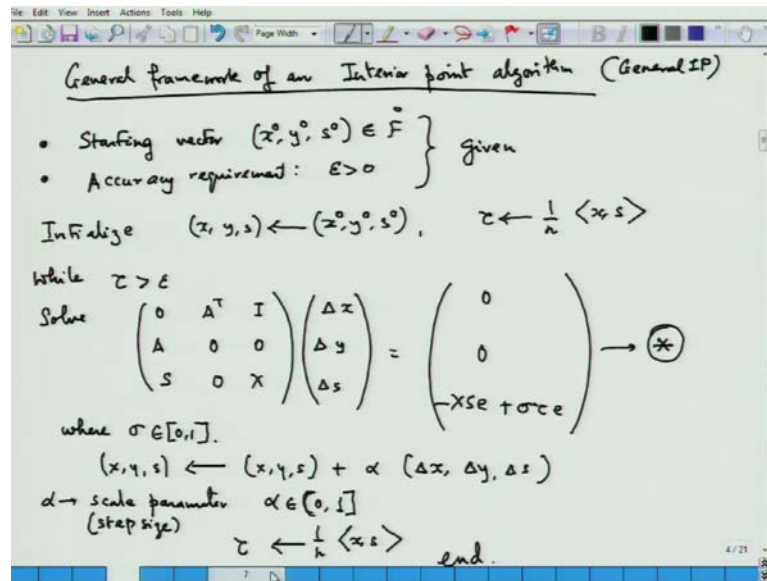 File Edit View Insert Actions Tools Help
Page Width
B I
General framework of an Interior point algorithm (General IP)
• Starting vector (x⁰, y⁰, s⁰) ∈ F̊ } given
• Accuracy requirement: ε>0
Initialize (x, y, s) ← (x⁰, y⁰, s⁰), τ ← 1/n <x, s>
while τ > ε
Solve
( 0 Aᵀ I ) ( Δx ) = ( 0 )
( A 0 0 ) ( Δy ) ( 0 ) → (*)
( S 0 X ) ( Δs ) ( -XSe + στe )
where σ ∈ [0,1].
(x, y, s) ← (x, y, s) + α (Δx, Δy, Δs)
α → scale parameter α ∈ [0, 1]
(step size)
τ ← 1/n <x s> end.
4 / 21
7